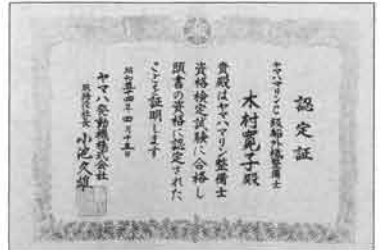 認定証
ヤマハマリン C級船外機整備士
木村寛子殿
貴殿はヤマハマリン整備士
資格検定試験に合格し
頭書の資格に認定された
ことを証明します
昭和五十四年四月十五日
ヤマハ発動機株式会社
取締役社長 小池久雄